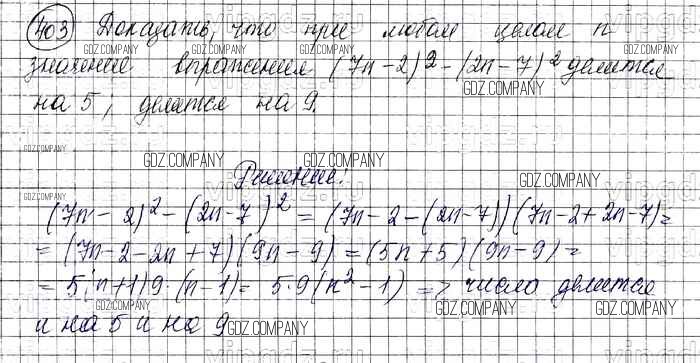 403 Доказать, что при любом целом n
значение выражения (7n-2)² - (2n-7)² делится
на 5, делится на 9.
Решение:
(7n-2)² - (2n-7)² = (7n-2-(2n-7))(7n-2+2n-7)=
= (7n-2-2n+7)(9n-9) = (5n+5)(9n-9) =
= 5(n+1)9·(n-1) = 5·9(n²-1) => число делится
и на 5 и на 9
GDZ.COMPANY
vipgdz.ru